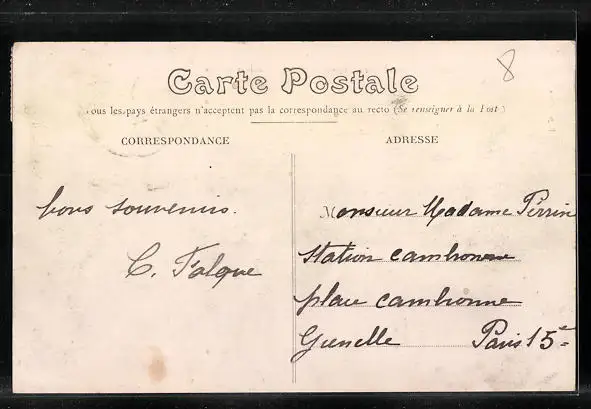 8
Carte Postale
ous les pays étrangers n'acceptent pas la correspondance au recto (Se renseigner à la Post )
CORRESPONDANCE
ADRESSE
bons souvenirs.
C. Falque
Monsieur Madame Perrin
station cambronne
place cambronne
Grenelle Paris 15e